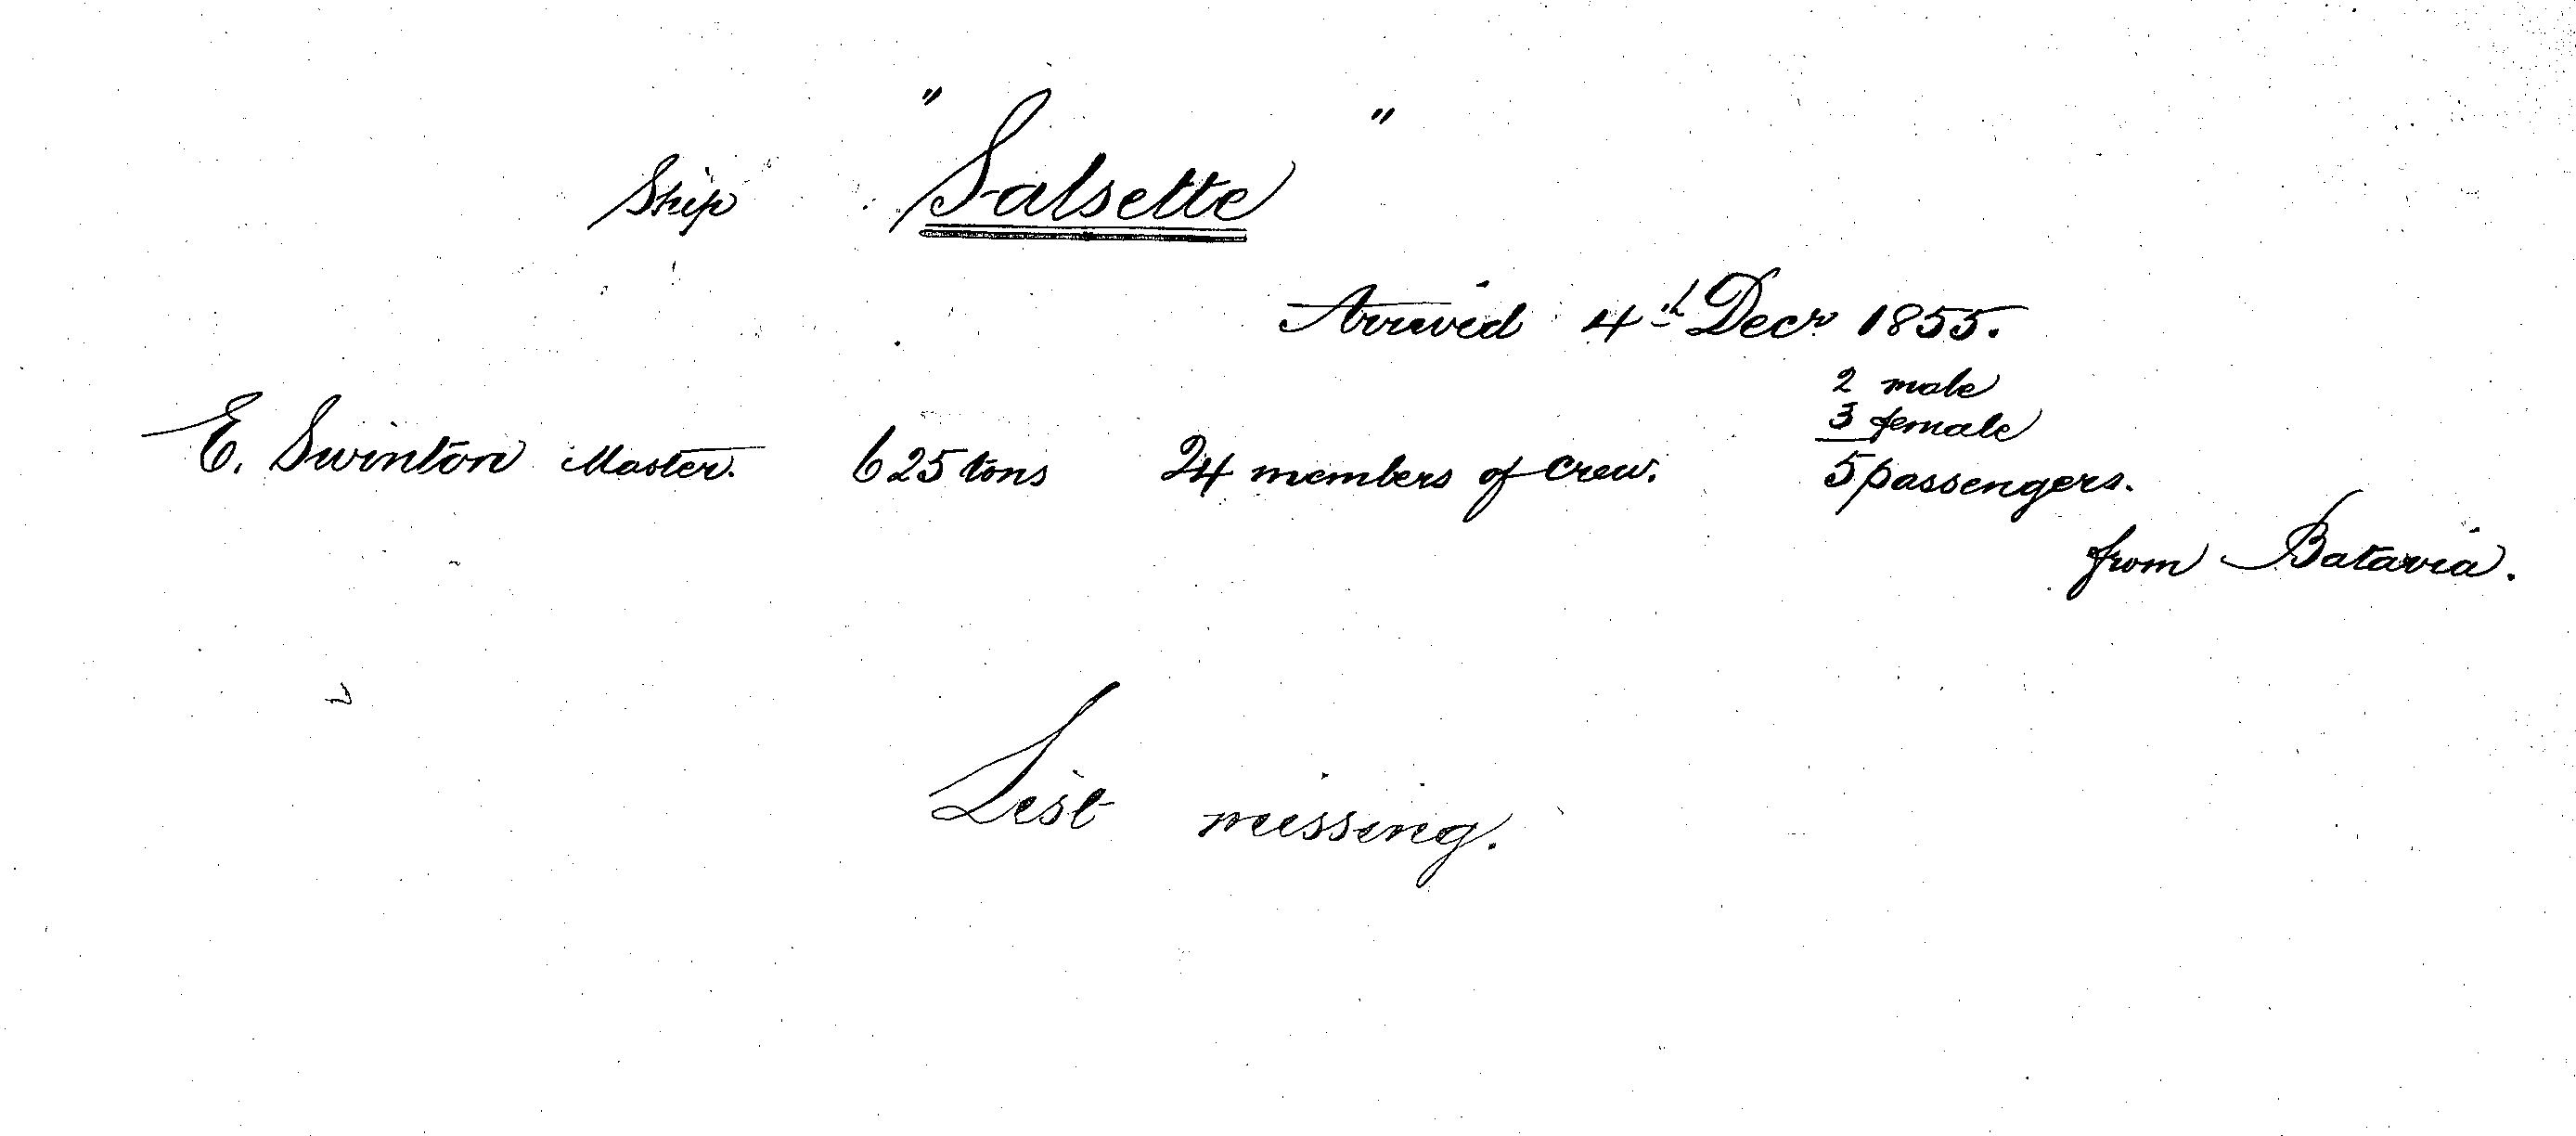 Ship " Salsette "
Arrived 4th Decr 1855.
2 male
3 female
E. Swinton Master. 625 tons 24 members of crew. 5 passengers.
from Batavia.
List missing.